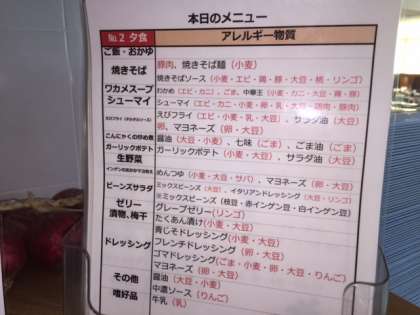 本日のメニュー
No.2 夕食 アレルギー物質
ご飯・おかゆ
焼きそば 豚肉、焼きそば麺（小麦）
焼きそばソース（小麦・エビ・鶏・豚・大豆・桃・リンゴ）
ワカメスープ わかめ（エビ・カニ）、ごま、中華王（小麦・カニ・大豆・鶏・豚）
シューマイ シューマイ（エビ・カニ・小麦・卵・乳・大豆・鶏肉・豚肉）
えびフライ（タルタルソース） えびフライ（エビ・小麦・乳・大豆）、サラダ油（大豆）
卵、マヨネーズ（卵・大豆）
こんにゃくの炒め煮 醤油（大豆・小麦）、七味（ごま）、ごま油（ごま）
ガーリックポテト ガーリックポテト（小麦・大豆）、サラダ油（大豆）
生野菜
めんつゆ（小麦・大豆・サバ）、マヨネーズ（卵・大豆）
ビーンズサラダ ミックスビーンズ（大豆）、イタリアンドレッシング（大豆・リンゴ）
※ミックスビーンズ（枝豆・赤インゲン豆・白インゲン豆）
ゼリー グレープゼリー（リンゴ）
漬物、梅干 たくあん漬け（小麦・大豆）
ドレッシング 青じそドレッシング（小麦・大豆）
フレンチドレッシング（卵・大豆）
ゴマドレッシング（ごま・小麦・卵・大豆・りんご）
マヨネーズ（卵・大豆）
その他 醤油（大豆・小麦）
中濃ソース（りんご）
嗜好品 牛乳（乳）